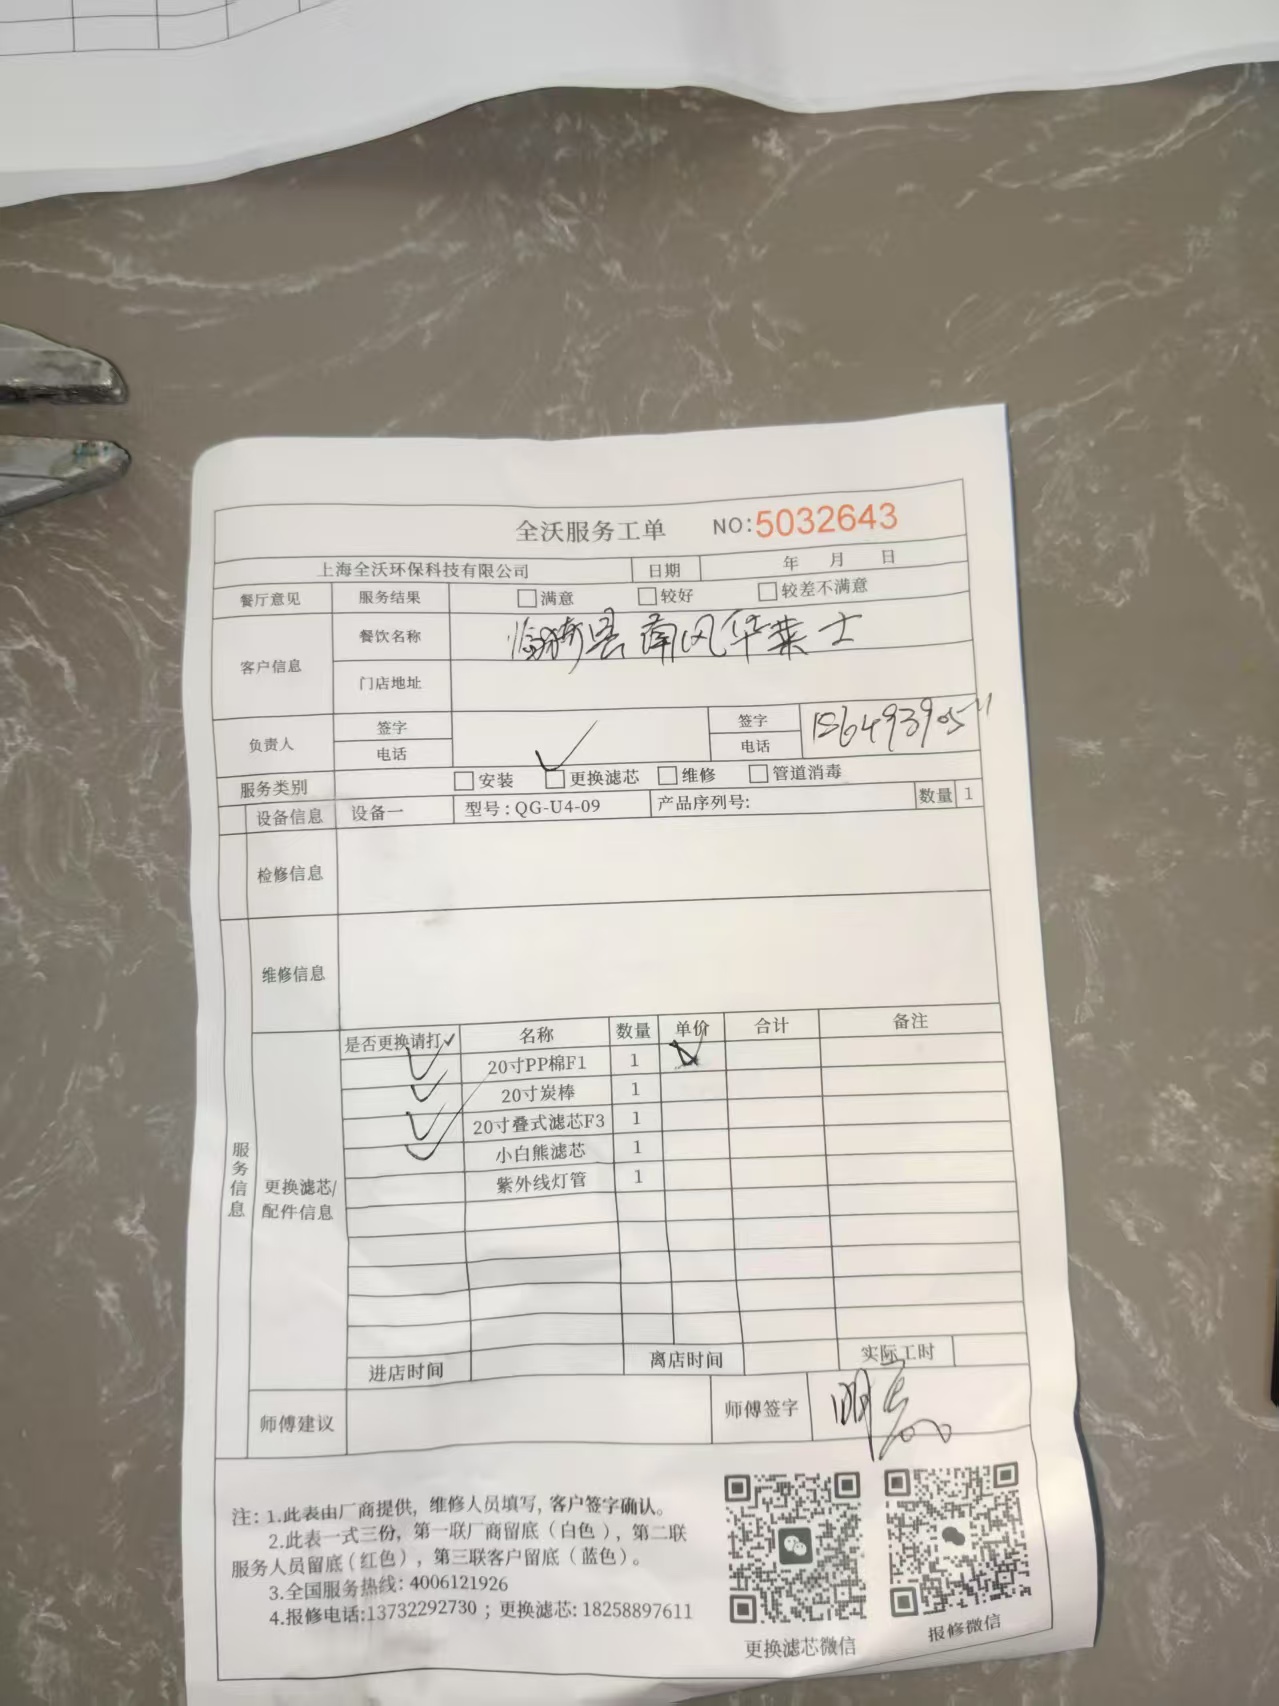 全沃服务工单 NO:5032643
上海全沃环保科技有限公司 日期 年 月 日
餐厅意见 服务结果 满意 较好 较差不满意
客户信息 餐饮名称 临猗县南风华莱士
门店地址
负责人 签字 签字
电话 电话
服务类别 安装 更换滤芯 维修 管道消毒
设备信息 设备一 型号:QG-U4-09 产品序列号: 数量 1
检修信息
维修信息
服务信息
更换滤芯/配件信息
是否更换请打✓ 名称 数量 单价 合计 备注
✓ 20寸PP棉F1 1
✓ 20寸炭棒 1
✓ 20寸叠式滤芯F3 1
✓ 小白熊滤芯 1
紫外线灯管 1
进店时间 离店时间 实际工时
师傅建议 师傅签字
注: 1.此表由厂商提供, 维修人员填写, 客户签字确认。
2.此表一式三份, 第一联厂商留底(白色), 第二联
服务人员留底(红色), 第三联客户留底(蓝色)。
3.全国服务热线: 4006121926
4.报修电话:13732292730 ; 更换滤芯: 18258897611
更换滤芯微信 报修微信